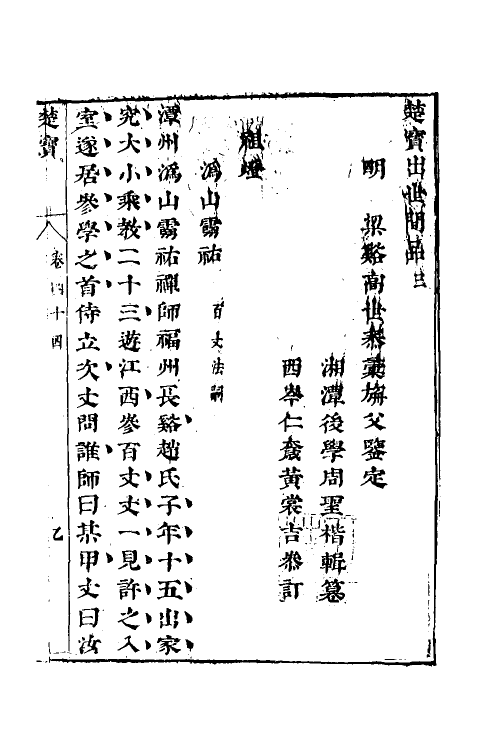 楚寶出世間品三
明 梁谿高世泰彙旃父鑒定
湘潭後學周聖楷輯篡
西岑仁菴黃裳吉叅訂
祖燈
溈山靈祐 百丈法嗣
潭州溈山靈祐禪師福州長谿趙氏子年十五出家
究大小乘教二十三遊江西參百丈丈一見許之入
室遂居參學之首侍立次丈問誰師曰某甲丈曰汝
楚寶 卷四十四 乙